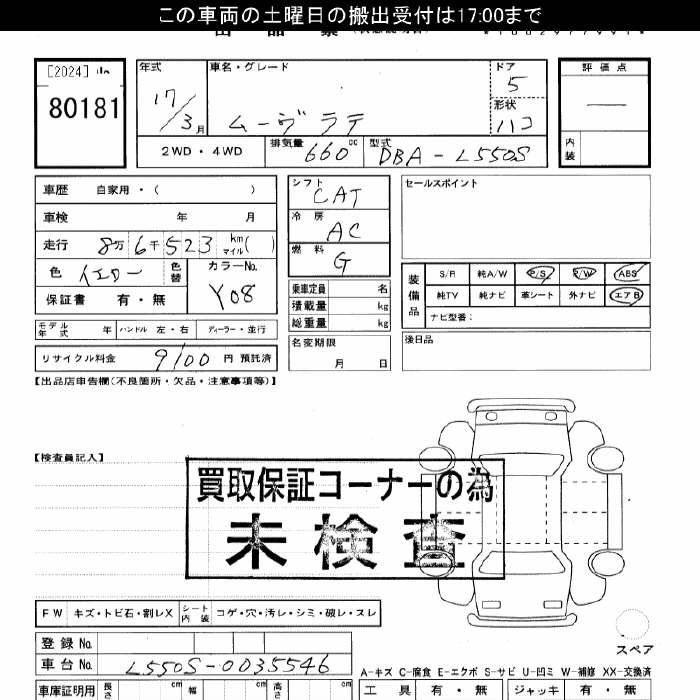 この車両の土曜日の搬出受付は17:00まで
[2024]
80181
年式
17/3月
車名・グレード
ムーヴ ラテ
ドア
5
形状
ハコ
評価点
—
内装
2WD・4WD
排気量
660cc
型式
DBA-L550S
車歴 自家用・( )
車検 年 月
走行 8万6千523 km マイル( )
色 イエロー 色替
カラーNo.
Y08
保証書 有・無
シフト
CAT
冷房
AC
燃料
G
セールスポイント
乗車定員 名
積載量 kg
総重量 kg
装備品
S/R 純A/W P/S P/W ABS
純TV 純ナビ 革シート 外ナビ エアB
ナビ型番:
モデル年式 年 ハンドル 左・右 ディーラー・並行
名変期限
月 日
後日品
リサイクル料金 9100 円 預託済
【出品店申告欄(不良箇所・欠品・注意事項等)】
【検査員記入】
買取保証コーナーの為
未検査
FW キズ・トビ石・割レX シート内装 コゲ・穴・汚レ・シミ・破レ・スレ
スペア
登録No.
車台No. L550S-0035546
A-キズ C-腐食 E-エクボ S-サビ U-凹ミ W-補修 XX-交換済
車庫証明用 長さ cm 幅 cm 高さ cm
工具 有・無 ジャッキ 有・無